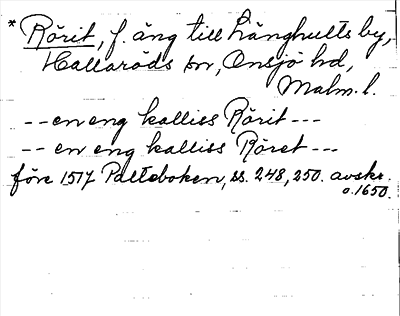 * Rörit, f. äng till Länghults by,
Hallaröds sn, Onsjö hd,
Malm. l.
-- en eng kalliss Rörit ---
-- en eng kalliss Röret ---
före 1517 Palteboken, ss. 248, 250. avskr.
o. 1650.